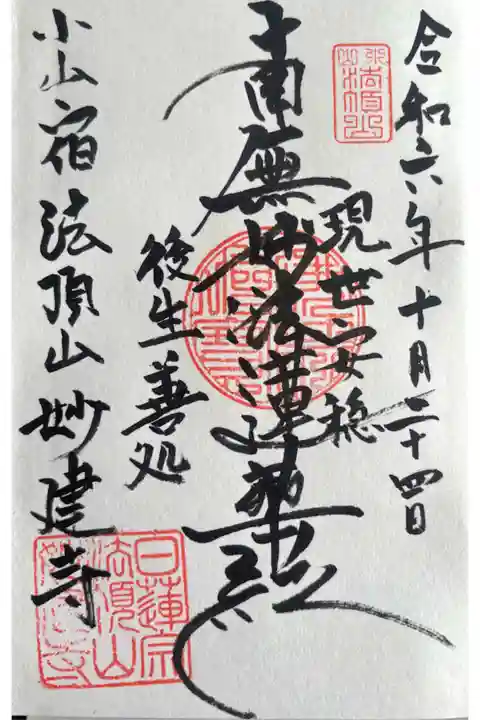 令和六年十月二十四日
現世安穏
南無妙法蓮華経
後生善処
小山宿法頂山妙建寺
日蓮宗
法頂山